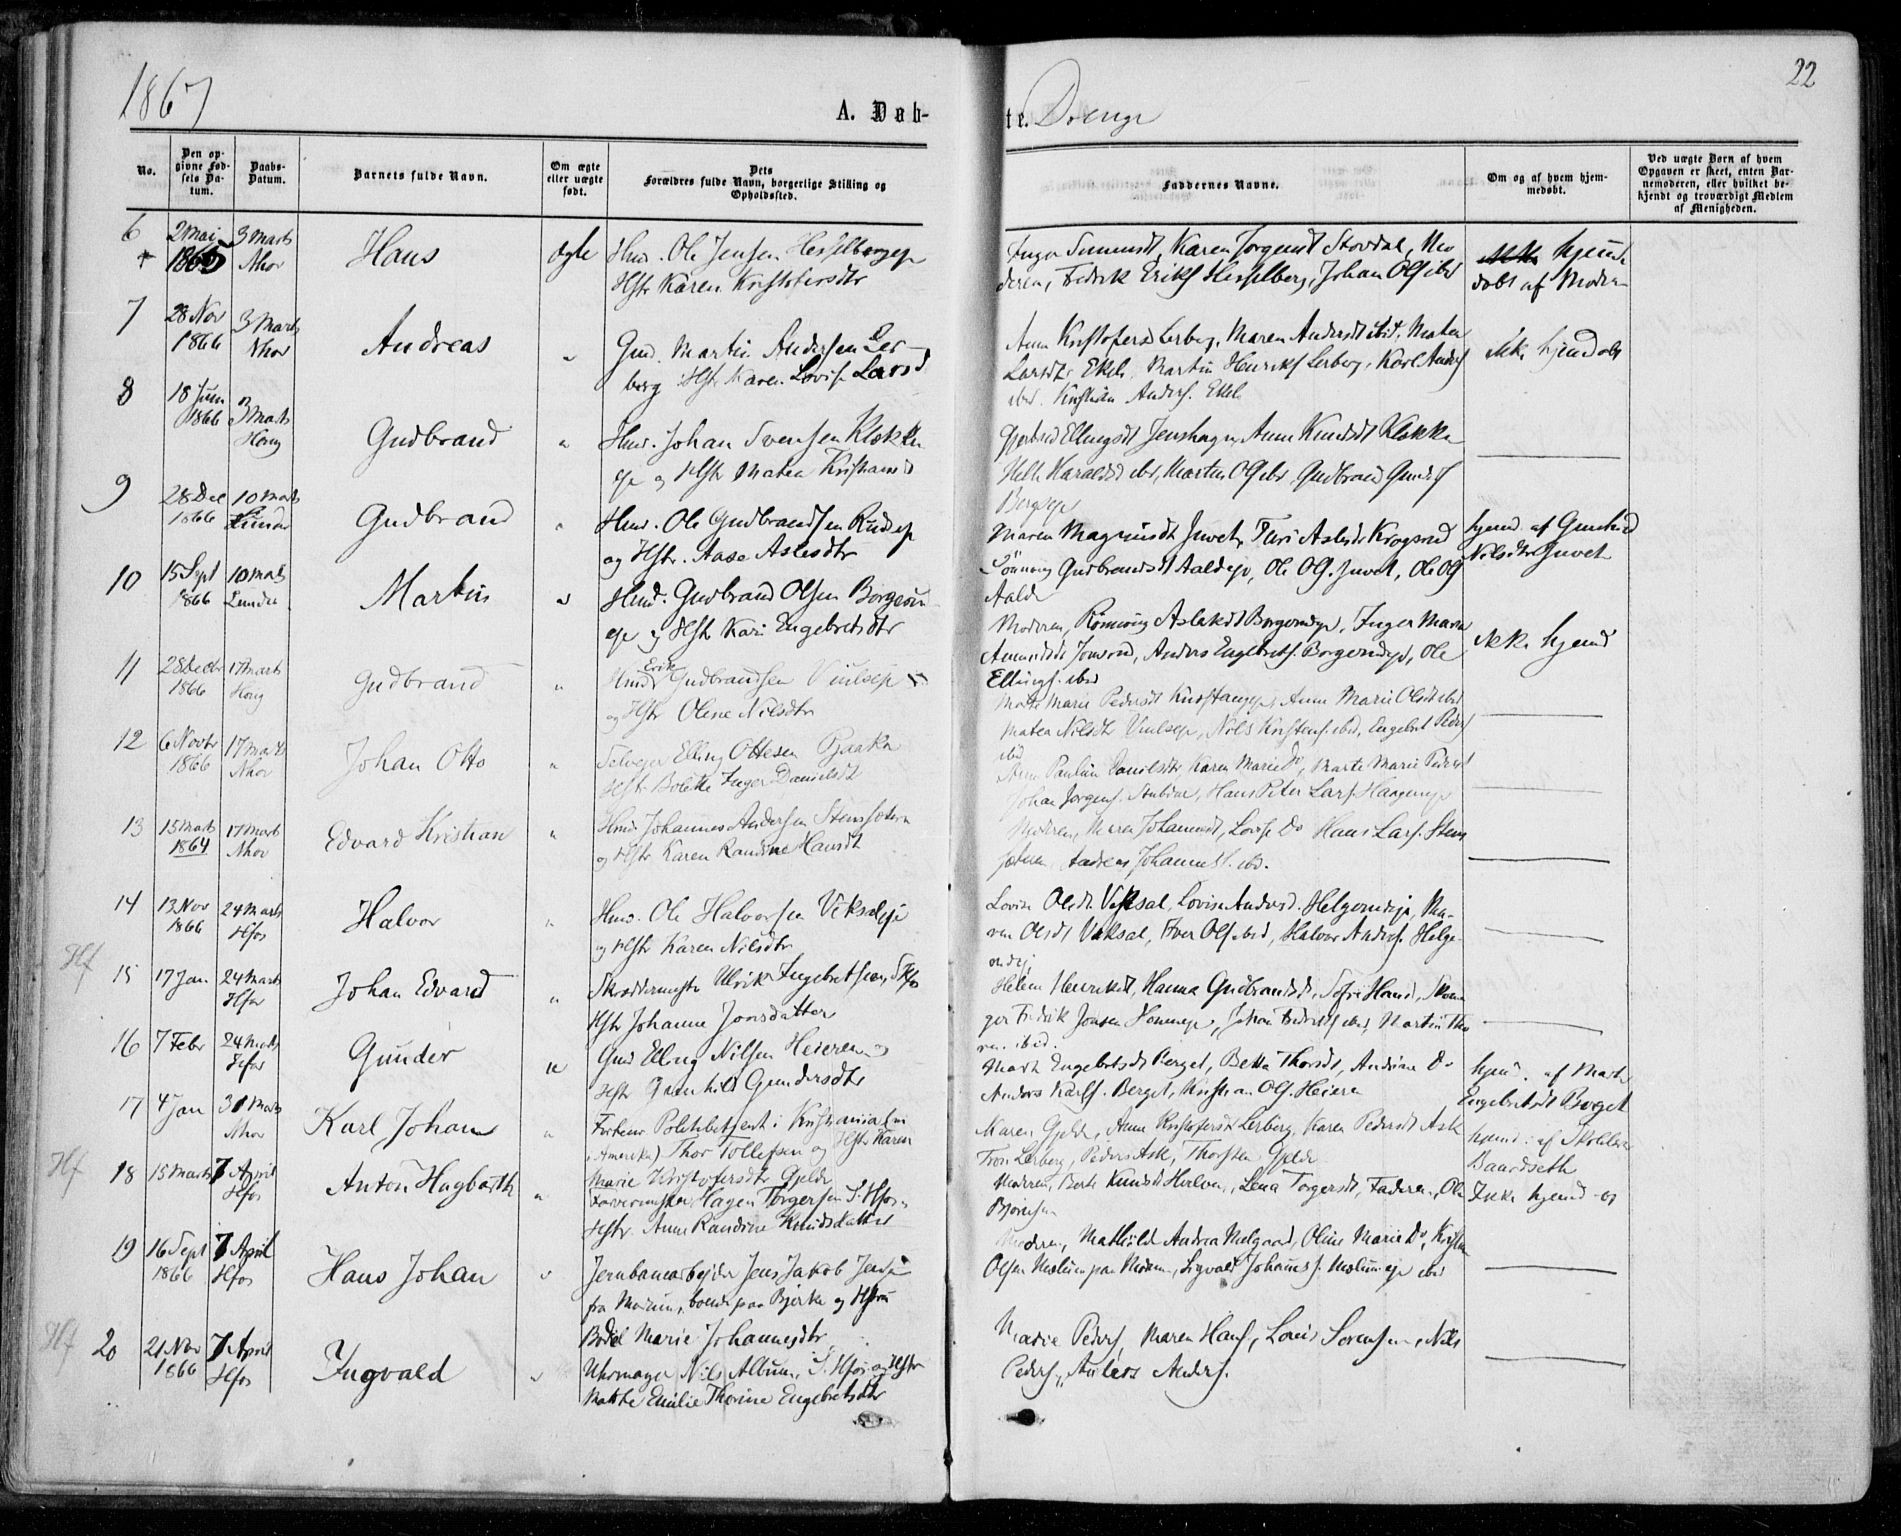 1867
22
A. Døb-
te. Drenge
No.
Den op-
givne Fød-
sels Da-
tum.
Daabs-
Datum.
Barnets fulde Navn.
Om ægte
eller uægte
født.
Dets
Forældres fulde Navn, borgerlige Stilling og
Opholdssted.
Faddernes Navne.
Om og af hvem hjem-
medøbt.
Ved uægte Børn af hvem
Opgaven er skeet, enten Bar-
nemoderen, eller hvilket be-
kjendt og troværdigt Medlem
af Menigheden.
6 2 Mai 1865 3 Marts Nhov Hans ægte Hmd. Ole Jensen Hesselbergeje
Hstr Karen Kristofersdtr
Karen Jorgensdt Stovdal, Mo
deren, Fredrik Eriks Hesselberg, Johan Ols ibd
hjemme
døbt af Moder
7 28 Nov 1866 3 Marts Nhov Andreas " Gmd. Martin Andersen Ler
berg Hstr Karen Lovise Larsd
Anne Kristofersd Lerberg, Maren Andersdt ibid. Matea
Larsdtr Ekeli, Martin Henriks Lerberg, Karl Anders
ibid. Kristian Anders. Ekel
ikke hjemdøbt
8 18 Juni 1866 3 Marts Houg Gudbrand " Hmd. Johan Svensen Klækken
eje og Hstr Matea Kristiansd
Gjertrud Ellingsdt Jenshaugen, Anne Knudsdt Klækken
Helle Haraldsd ibd, Morten Ols ibd, Gudbrand Gunders
Bergseje
9 28 Dec 1866 10 Marts Lunder Gudbrand " Hmd. Ole Gudbrandsen Rudseje
og Hstr. Aase Aslesdtr
Maren Magnusdt Juvet, Turi Aslesdt Krogsrud
Rønnoug Gudbrandsdt Aaldeje, Ole OG. Juvet, Ole OG
Aalde
hjemd. af Gunhild
Nilsdtr Juvet
10 15 Sept 1866 10 Marts Lunder Martin " Hmd. Gudbrand Olsen Borgerud
eje og Hstr Kari Engebretsdtr
Moderen, Rønnoug Aslaksdt Borgerudeje, Inger Maria
Amundsdt Jonsrud, Anders Engebrets. Borgerudeje, Ole
Ellings. ibid
ikke hjemd
11 28 Decbr 1866 17 Marts Houg Gudbrand " Hmd Erik Gudbrandsen Viulseje
og Hstr Olene Nilsdtr
Marte Marie Pedersdt Knestangeje, Anne Marie Olsdt ibd
Matea Nilsdtr Viulseje, Nils Kristens. ibid, Engebret Peders
ibid
12 6 Novbr 1866 17 Marts Nhov Johan Otto " Selvejer Elling Ottesen Bjaaker
Hstr Bolette Inger Danielsdt
Anne Pauline Danielsdtr, Karen Marie Do, Marte Marie Pedersd
Johan Jørgens. , Hans Peter Lars.
13 15 Marts 1864 17 Marts Nhov Edvard Kristian " Hmd Johannes Andersen Stenssæteren
og Hstr Karen Randine Hansdt
Moderen, Maren Johannesd, Lovise Do Hans Lars. Stens
sæteren, Andreas Johannes. ibd.
14 13 Nov 1866 24 Marts Hfos Halvor " Hmd. Ole Halvorsen Veksaleje
og Hstr Karen Nilsdtr
Lovise Olsdt Veksal, Lovise Andersd. Helgerudeje, Ma-
ren Olsdt Veksal, Iver Ols ibd, Halvor Anders. Helge-
rudeje
Hf 15 17 Jan 24 Marts Hfos Johan Edvard " Skræddermester Ulrik Ingebretsen, S. Hfos
Hstr Johanne Jonsdatter
Helene Henriksdt, Hanna Gudbrandsd, Sofie Hansd,
Fredrik Jonsen Honneje, Johan Fredriks ibid, Martin Tho
ibid.
16 7 Febr 24 Marts Hfos Gunder " Gmd Elling Nilsen Heieren og
Hstr Gunhild Gundersdtr
Marte Engebretsdt Berget, Betta Thorsdt, Andrine Do
Anders Karls. Berget, Kristian Ols. Heieren
hjemd. af Marte
Engebretsdt Berget
17 4 Jan 31 Marts Nhov Karl Johan " Forhenv. Politibetjent i Kristiania (nu
i Amerika) Thor Tollefsen og Hstr Karen
Marie Kristofersdtr Gjelde
Maren Gjelde, Anne Kristofersdt Lerberg, Karen Pedersdt Ask
Tron Lerberg, Peders Ask, Thorsten Gjelde
hjemd. af
Baardseth
Hf 18 15 Marts 7 April Hfos Anton Hagbarth " Farvermester Hagen Torgersen S. Hfos,
Hstr. Anne Randine Knudsdatter
Moderen, Berte Knudsdt Hvelven, Lena Torgersdt, Faderen, Ole
Bjørnsen
Ikke hjemd
19 16 Sept 1866 7 April Hfos Hans Johan " Jernbanearbejder Jens Jakob Jensen
fra Modum, boende paa Bjerke og Hstru
Bodil Marie Johannesdtr
Moderen, Mathilde Andrea Melgaard, Oline Marie Do, Kristen
Olsen Meslum paa Modum, Sigvald Johanns. Meslumeje ibd
Hf 20 21 Nov 1866 7 April Hfos Ingvald " Uhrmager Nils Album, S. Hfos og Hstr
Mathe Emilie Thorine Engebretsdtr
Maria Peders, Maren Hans, Louis Sørensen, Nils
Peders, Anders Anders.